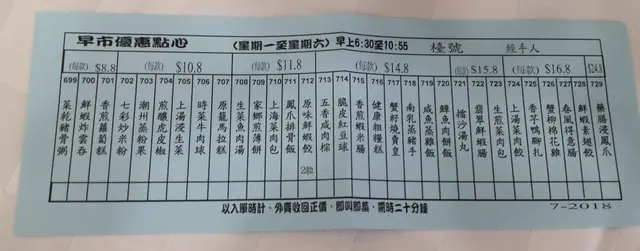 早市優惠點心 (星期一至星期六) 早上6:30至10:55 檯號 經手人
(每款) $8.8 (每款) $10.8 (每款) $11.8 (每款) $14.8 (每款) $15.8 (每款) $16.8 $24.8
699 700 701 702 703 704 705 706 707 708 709 710 711 712 713 714 715 716 717 718 719 720 721 722 723 724 725 726 727 728 729
菜乾豬骨粥
鮮蝦炸雲吞
香煎蘿蔔糕
七彩炒米粉
潮州蒸粉果
煎釀虎皮椒
上湯浸生菜
時菜牛肉球
原籠馬拉糕
生菜魚肉湯
家鄉煎薄餅
上海菜肉包
鳳爪排骨飯
原味鮮蝦餃
2粒
五香咸肉粽
脆皮紅豆球
香煎蝦米腸
健康粗糧糕
蟹籽燒賣皇
南乳蒸豬手
咸魚蒸雞飯
鯪魚肉蒸飯
擂沙湯丸
翡翠鮮蝦腸
生煎菜肉包
上湯菜肉餃
香芋鴨腳扎
蟹柳棉花雞
春風得意腸
鮮蝦素翅餃
藥膳浸鳳爪
以入單時計，外賣收回正價，即叫即蒸，需時二十分鐘
7-2018